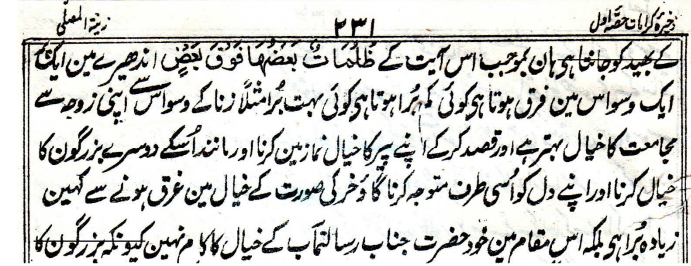 ذخیرۂ کرامات حصّہ اول ۲۳۱ زینۃ المصلّی
کے بھید کو جانتا ہی ہان بموجب اس آیت کے ظُلُمَاتٌ بَعْضُهَا فَوْقَ بَعْضٍ اندھیرے ہین ایک سے
ایک وسواس مین فرق ہوتا ہی کوئی کم برا ہوتا ہی کوئی بہت برا مثلاً زنا کے وسواس سے اپنی زوجہ سے
مجامعت کا خیال بہتر ہے اور قصد کرکے اپنے پیر کا خیال نماز مین کرنا اور مانند اُسکے دوسرے بزرگون کا
خیال کرنا اور اپنے دل کو اُسی طرف متوجہ کرنا گاؤخر کی صورت کے خیال مین غرق ہونے سے کہین
زیادہ برا ہی بلکہ اس مقام مین خود حضرت جناب رسالتمآب کے خیال کا کام نہین کیونکہ بزرگون کا